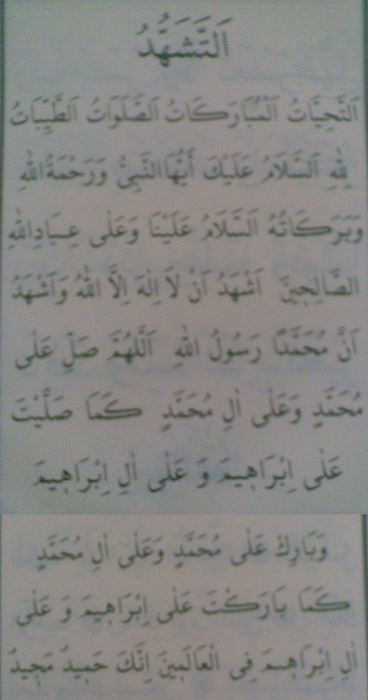 اَلتَّشَهُّدُ
اَلتَّحِيَّاتُ الْمُبَارَكَاتُ الصَّلَوَاتُ الطَّيِّبَاتُ
لِلّٰهِ اَلسَّلَامُ عَلَيْكَ اَيُّهَا النَّبِىُّ وَرَحْمَةُ اللهِ
وَبَرَكَاتُهُ اَلسَّلَامُ عَلَيْنَا وَعَلٰى عِبَادِ اللهِ
الصَّالِحِينَ اَشْهَدُ اَنْ لَا اِلٰهَ اِلَّا اللهُ وَاَشْهَدُ
اَنَّ مُحَمَّدًا رَسُولُ اللهِ اَللّٰهُمَّ صَلِّ عَلٰى
مُحَمَّدٍ وَعَلٰى اٰلِ مُحَمَّدٍ كَمَا صَلَّيْتَ
عَلٰى اِبْرَاهِيمَ وَ عَلٰى اٰلِ اِبْرَاهِيمَ
وَبَارِكْ عَلٰى مُحَمَّدٍ وَعَلٰى اٰلِ مُحَمَّدٍ
كَمَا بَارَكْتَ عَلٰى اِبْرَاهِيمَ وَ عَلٰى
اٰلِ اِبْرَاهِيمَ فِى الْعَالَمِينَ اِنَّكَ حَمِيدٌ مَجِيدٌ